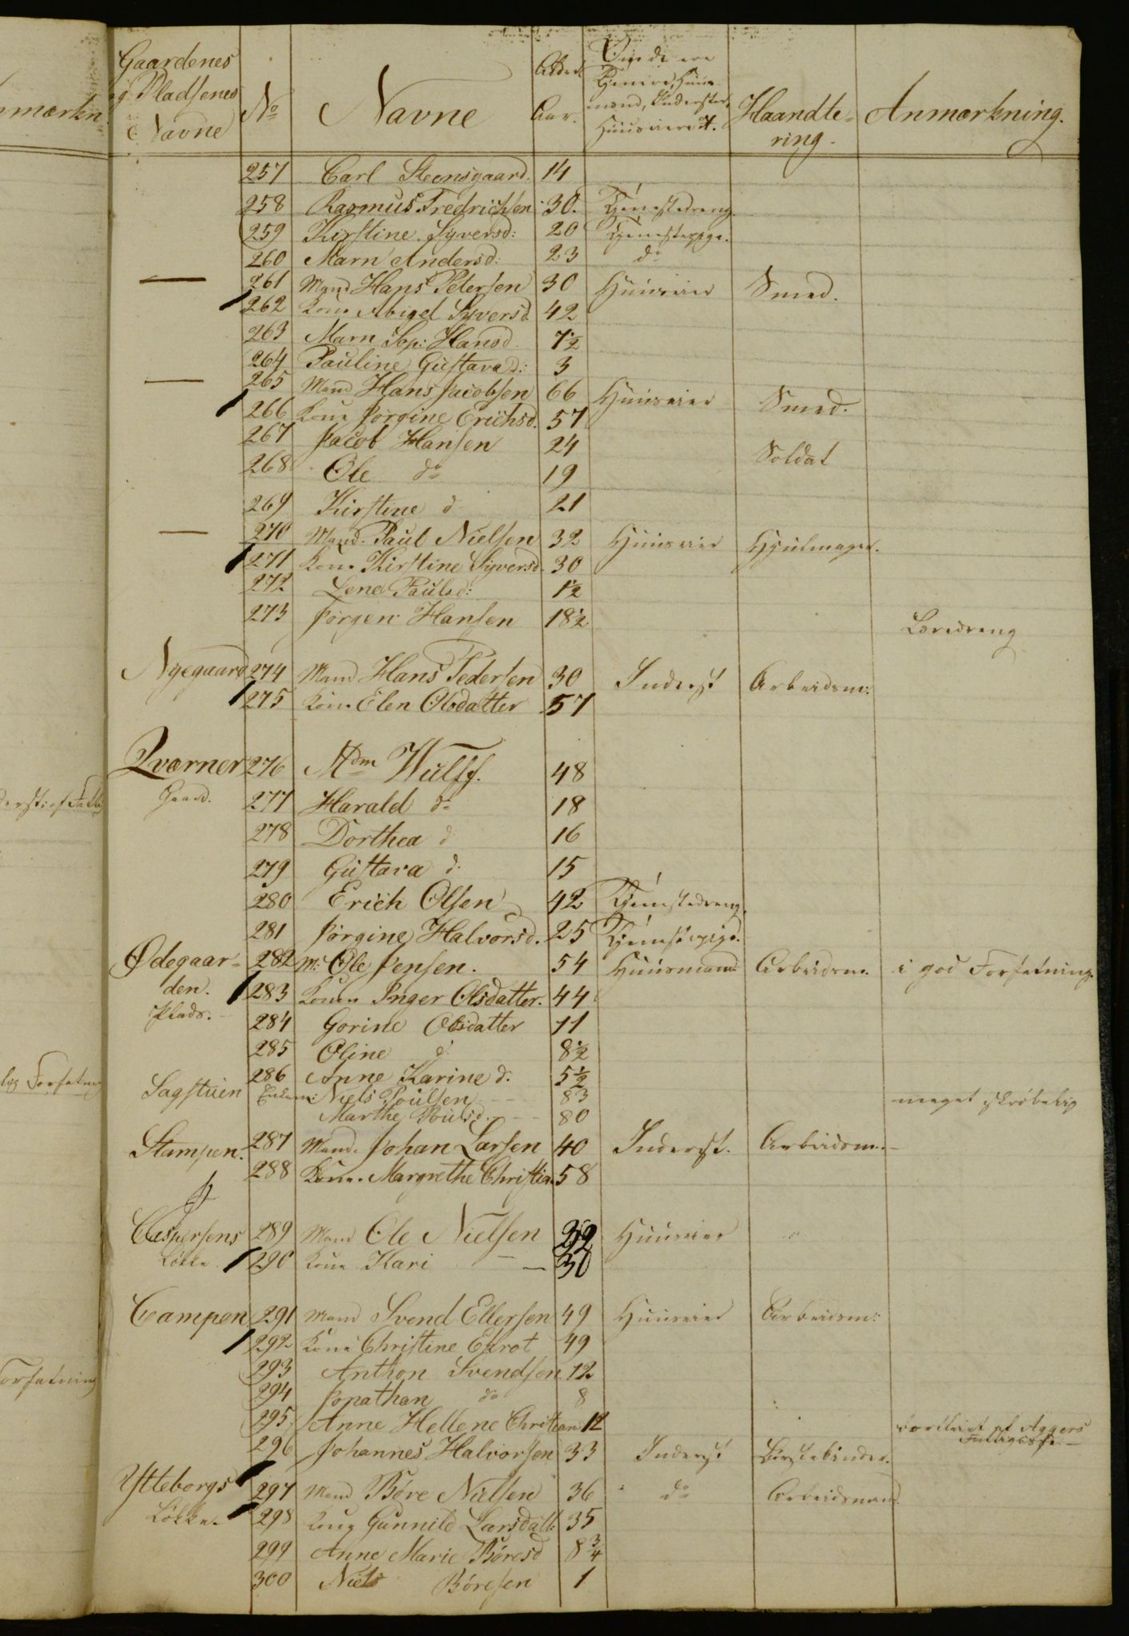 Gaardenes og Pladsenes Navne | No | Navne | Alder Aar. | Om de ere Huus mænd, Inderster, Huuseiere | Haandte-ring. | Anmærkning.
257 Carl Steensgaard. 14
258 Rasmus Fredrichsen 30. Tjenestedreng
259 Kirstine Syversd: 20 Tjenestepige.
260 Marn Andersd: 23 do
— 261 Mand Hans Petersen 30 Huuseier Smed.
262 Kone Abigel Syversd 42
263 Marn Sop: Hansd 7½
264 Pauline Gustava d: 3
— 265 Mand Hans Jacobsen 66 Huuseier Smed.
266 Kone Jörgine Erichsd. 57
267 Jacob Hansen 24 Soldat
268 Ole do 19
269 Kirstine d 21
— 270 Mand Paul Nielsen 32 Huuseier Hjulmager.
271 Kone Kirstine Syversd 30
272 Lene Paulsd: 1½
273 Jörgen Hansen 18½ Læredreng
Nyegaard 274 Mand Hans Pedersen 30 Inderst Arbeidsm:
275 Kone Elen Olsdatter 57
Qværner 276 Mdm Wulff. 48
Gaard. 277 Harald do 18
278 Dorthea d 16
279 Gustava d: 15
280 Erich Olsen 42 Tjenestedreng
281 Jörgine Halvorsd. 25 Tjenestepige.
Ødegaar- 282 M: Ole Jensen. 54 Huusmand Arbeidsm. i god Forfatning
den. 283 Konen Inger Olsdatter. 44
Plads. 284 Gorine Olsdatter 11
285 Oline d: 8½
286 Anne Karine d: 5½
Sagstuen Niels Poulsen 83 meget skröbelig
Marthe Poulsd. 80
Stampen. 287 Mand. Johan Larsen 40 Inderst. Arbeidsm.
288 Kone. Margrethe Christian 58
Caspersens 289 Mand Ole Nielsen 32 Huuseier
Løkke 290 Kone Kari — 30
Campen 291 Mand Svend Ellersen 49 Huuseier Arbeidsm:
292 Kone Christine 49
293 Anthon Svendsen 12
294 Jonathan do 8
295 Anne Hellene Christian 12
296 Johannes Halvorsen 33 Inderst Børstebinder.
Ytteborgs 297 Mand Böre Nielsen 36 do Arbeidsmand
Løkke. 298 Kone Gunnild Larsdatt: 35
299 Anne Marie Böresd 8¾
300 Niels Böresen 1